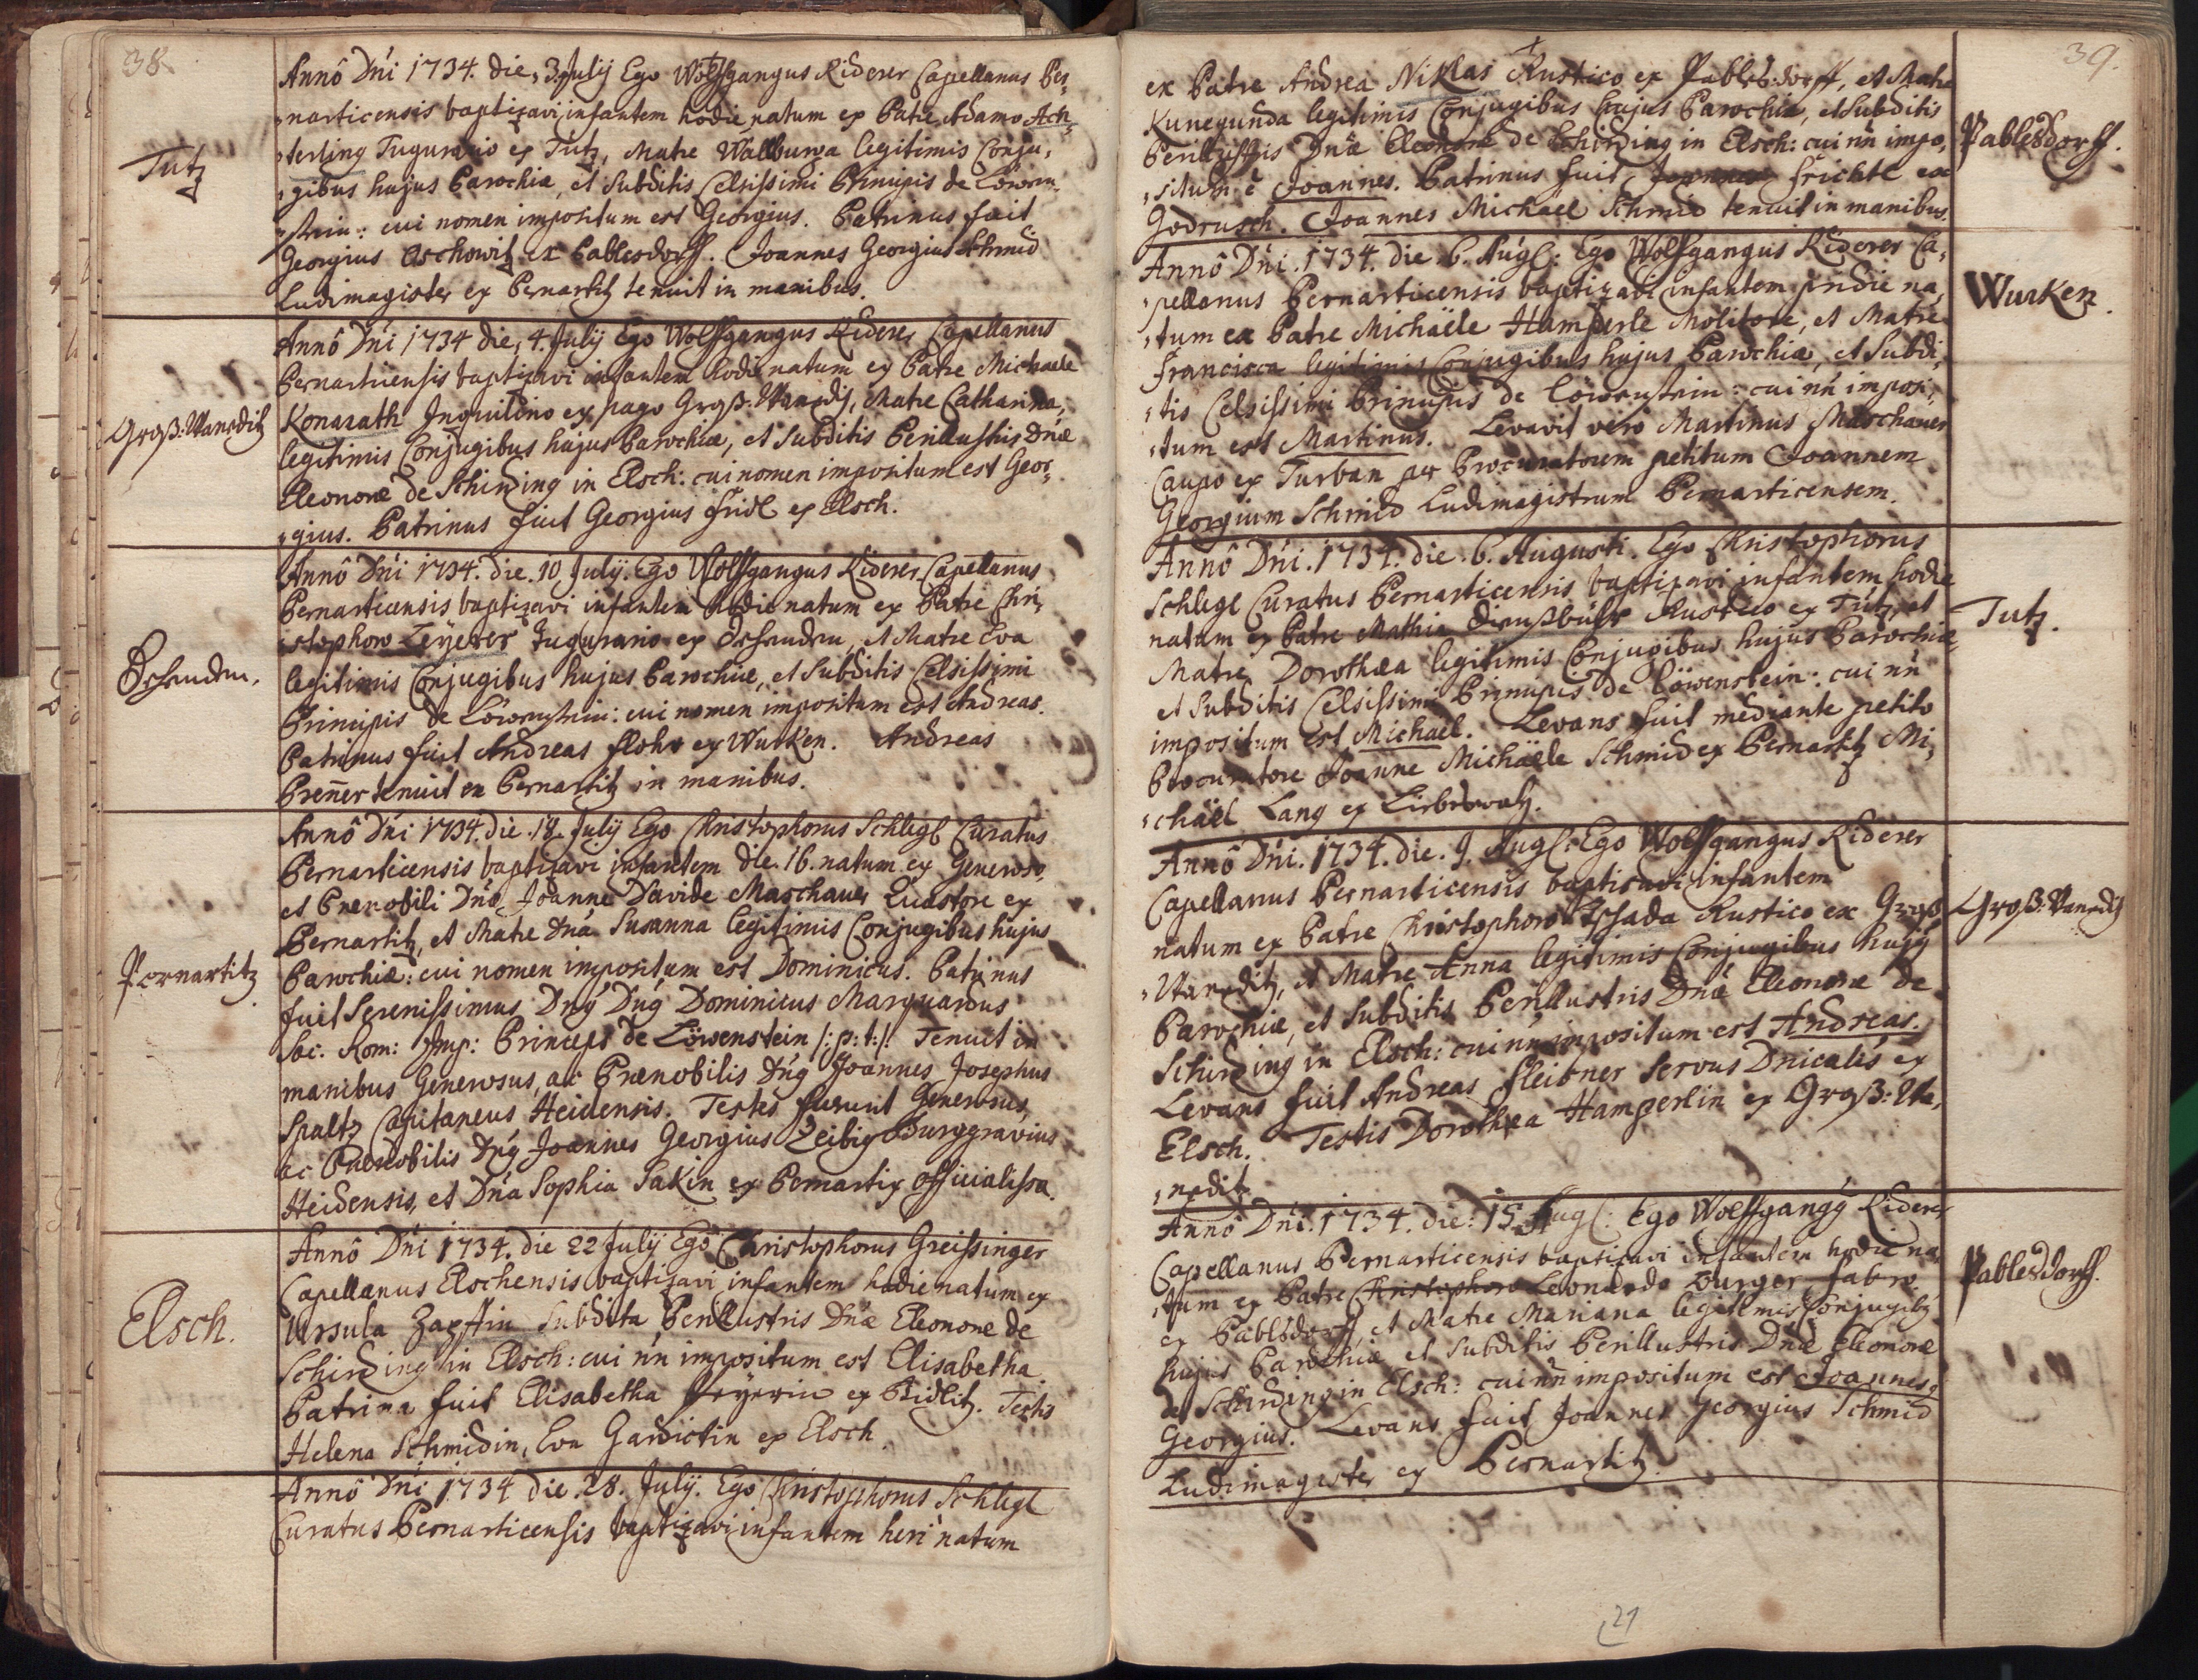 38.
Tutz
Annô Dńi 1734. die, 3. July Ego Wolfgangus Riderer Capellanus Per,
narticensis baptizavi infantem hodie natum ex Patre Adamo Ach,
terling Tugurario ex Tutz, Matre Walburga legitimis Conju,
gibus hujus Parochiæ, et Subditis Celsissimi Principis de Löwen,
stein: cui nomen impositum est Georgius. Patrinus fuit
Georgius Oschowitz ex Pablesdorff. Joannes Georgius Schmid
Ludimagister ex Pernartitz tenuit in manibus.
Groß:Waneditz
Annô Dńi 1734 die, 4. July Ego Wolffgangus Riderer Capellanus
Pernarticensis baptizavi infantem hodie natum ex Patre Michaele
Konarath Inquilino ex pago Groß:Waneditz, Matre Catharina,
legitimis Conjugibus hujus Parochiæ, et Subditis Perillustris Dnæ
Eleonoræ de Schirding in Elsch: cui nomen impositum est Geor,
gius. Patrinus fuit Georgius Fridl ex Elsch.
Annô Dńi 1734. die. 10. July. Ego Wolffgangus Riderer Capellanus
Pernarticensis baptizavi infantem hodie natum ex Patre Chri,
stophoro Leyerer Tugurario ex , et Matre Eva
legitimis Conjugibus hujus Parochiæ, et Subditis Celsissimi
Principis de Löwenstein: cui nomen impositum est Andreas.
Patrinus fuit Andreas Flohr ex Wurken. Andreas
Preñer tenuit ex Pernartitz in manibus.
Pernartitz
Annô Dńi 1734. die. 18. July Ego Christophorus Schlegl Curatus
Pernarticensis baptizavi infantem die. 16. natum ex Generoso,
et Prænobili Dńo Joanne Davide Maschauer Quæstore ex
Pernartitz, et Matre Dńa Susanna legitimis Conjugibus hujus
Parochiæ: cui nomen impositum est Dominicus. Patrinus
fuit Serenissimus Dńg Dńg Dominicus Marquardus
Sac: Rom: Imp: Princeps de Löwenstein /: p: t: /: Tenuit in
manibus Generosus, ac Prænobilis Dńg Joannes Josephus
Spaltz Capitaneus Heidensis. Testes fuerunt Generosus,
ac Prænobilis Dńg Joannes Georgius Zeibig Burggravius
Heidensis, et Dńa Sophia Sakin ex Pernartiz officialissa.
Elsch.
Annô Dńi 1734. die 22 July Ego Christophorus Greissinger
Capellanus Elschensis baptizavi infantem hodie natum ex
Ursula Zapffin Subdita Perillustris Dńæ Eleonoræ de
Schirding in Elsch: cui ńn impositum est Elisabetha.
Patrina fuit Elisabetha ex Zidlitz. Testis
Helena Schmidin, Eva Gardictin ex Elsch.
Annô Dńi 1734 die. 28. July. Ego Christophorus Schlegl
Curatus Pernarticensis baptizavi infantem heri natum
39.
Pablesdorff.
ex Patre Andrea Niklas Rustico ex Pablesdorff, et Matre
Kunegunda legitimis Conjugibus hujus Parochiæ, et Subditis
Perillustris Dnæ Eleonoræ de Schirding in Elsch: cui ńn impo,
situm ê Joannes. Patrinus fuit Frichtl ex
Godrusch. Joannes Michael Schmid tenuit in manibus.
Wurken.
Annô Dńi. 1734. die. 6. Aug: Ego Wolffgangus Riderer Ca,
pellanus Pernarticensis baptizavi infantem pridie na,
tum ex Patre Michäele Hamperle Molitore, et Matre
Francisca legitimis Conjugibus hujus Parochiæ, et Subdi,
tis Celsissimi Principis de Löwenstein: cui ńn imposi,
tum est Martinus. Levavit verò Martinus Maschauer
Caupo ex Turban per Procuratorem petitum Joannem
Georgium Schmid Ludimagistrum Pernarticensem.
Tutz.
Annô Dńi. 1734. die. 6. Augusti. Ego Christophorus
Schlegl Curatus Pernarticensis baptizavi infantem hodie
natum ex Patre Mathia Rustico ex Tutz, et
Matre Dorothæa legitimis Conjugibus hujus Parochiæ,
et Subditis Celsissimi Principis de Löwenstein: cui ńn
impositum est Michaël. Levans fuit mediante petito
Procuratore Joanne Michäele Schmid ex Pernartitz Mi,
chäel Lang ex
Groß:Waneditz
Annô Dńi. 1734. die. 9. Aug: Ego Wolffgangus Riderer
Capellanus Pernarticensis baptizavi infantem
natum ex Patre Christophoro Rustico ex Groß
Waneditz, et Matre Anna legitimis Conjugibus hujg
Parochiæ, et Subditis Perillustris Dnæ Eleonoræ de
Schirding in Elsch: cui ńn impositum est Andreas.
Levans fuit Andreas Fleisner servus Dńicalis ex
Elsch. Testis Dorothæa Hamperlin ex Groß:Wa,
neditz.
Pablesdorff.
Annô Dńi. 1734. die: 15. Aug: Ego Wolffgangg Riderer
Capellanus Pernarticensis baptizavi infantem hodie na,
tum ex Patre Christophoro Leonardo Burger fabro
ex Pablsdorff, et Matre Mariana legitimis Conjugibg
hujus Parochiæ, et Subditis Perillustris Dńæ Eleonoræ
de Schirding in Elsch: cui ńn impositum est Joannes
Georgius. Levans fuit Joannes Georgius Schmid
Ludimagister ex Pernartitz.
21